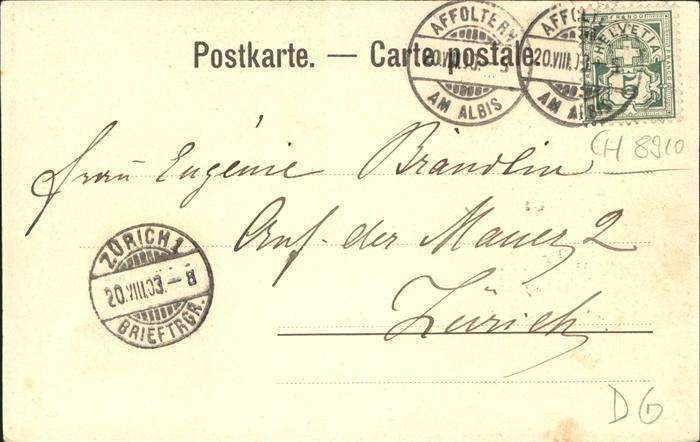 Postkarte. — Carte postale.
AFFOLTERN
20.VIII.03.
AM ALBIS
AFFO
20.VIII.03
AM ALBIS
FRANCO
HELVETIA
5
CH 8910
Frau Eugénie Brändlin
Auf der Mauer 2
Zürich
ZÜRICH 1
20.VIII.03.–8
BRIEFTRGR.
D G